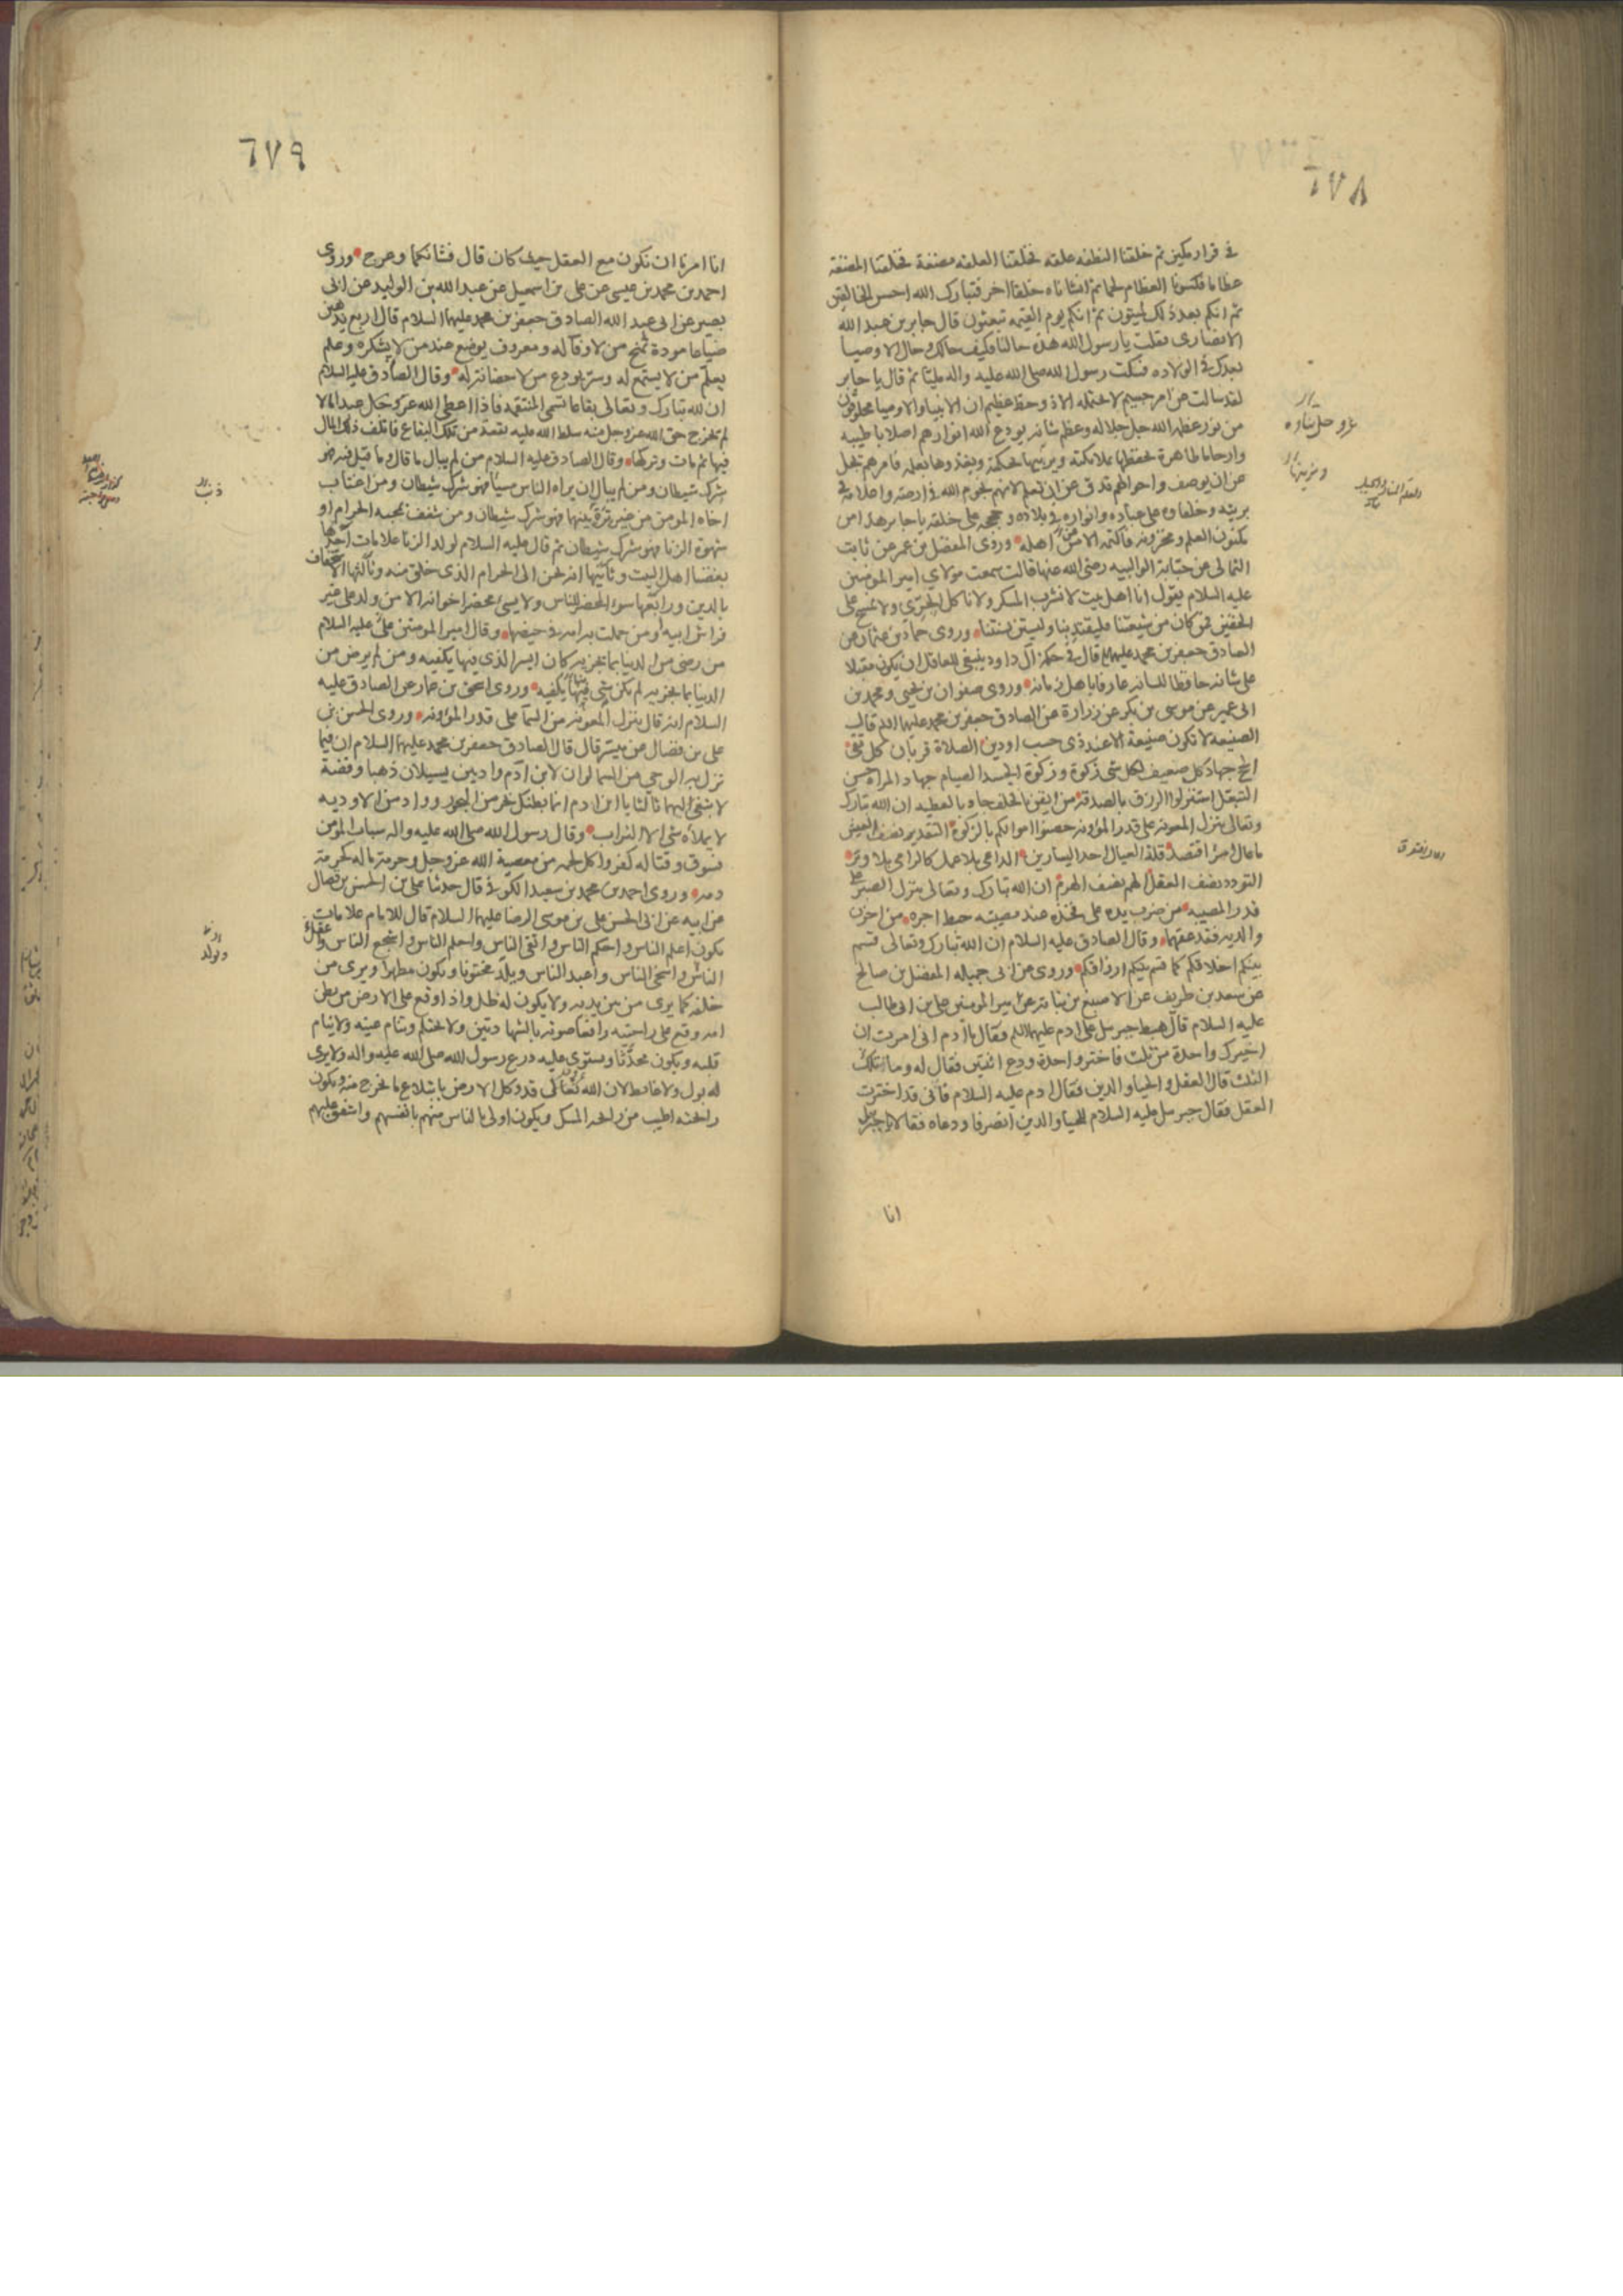 ٦٧٨
في قرار مكين ثم خلقنا النطفه علقه فخلقنا العلقه مضغة فخلقنا المضغة
عظاما فكسونا العظام لحما ثم انشاناه خلقا اخر فتبارك الله احسن الخالقين
ثم انكم بعد ذلك لميتون ثم انكم يوم القيمه تبعثون قال جابر بن عبد الله
الانصارى فقلت يا رسول الله هذه حالنا فكيف حالك وحال الاوصيا
بعدك في الولاده فسكت رسول الله صلى الله عليه واله مليا ثم قال يا جابر
لقد سالت عن امر جسيم لا يحتمله الا ذو حظ عظيم ان الانبيا والاوصيا مخلوقون
من نور عظمه الله جل جلاله وعظم شانه يودع الله انوارهم اصلابا طيبه
وارحاما طاهرة يحفظها بملائكته ويربيها بحكمته ويغذوها بعلمه فامرهم يجل
عن ان يوصف واحوالهم تدق عن ان تعلم لانهم نجوم الله في ارضه واعلامه في
بريته وخلفاوه على عباده وانواره في بلاده وحججه على خلقه يا جابر هذا من
مكنون العلم ومخزونه فاكتمه الا من اهله وروى المفضل بن عمر عن ثابت
الثمالى عن حبابة الوالبيه رضى الله عنها قالت سمعت مولاي امير المومنين
عليه السلام يقول انا اهل بيت لا نشرب المسكر ولا ناكل الجرى ولا نمسح على
الخفين فمن كان من شيعتنا فليقتد بنا وليستن بسنتنا وروى حماد بن عثمان عن
الصادق جعفر بن محمد عليهما قال في حكمة آل داود ينبغى للعاقل ان يكون مقبلا
على شانه حافظا للسانه عارفا باهل زمانه وروى صفوان بن يحيى ومحمد بن
ابى عمير عن موسى بن بكر عن زرارة عن الصادق جعفر بن محمد عليهما قال
الصنيعه لا تكون صنيعة الا عند ذى حسب او دين الصلاة قربان كل تقى
الحج جهاد كل ضعيف لكل شى زكوة وزكوة الجسد الصيام جهاد المراة حسن
التبعل استنزلوا الرزق بالصدقة من ايقن بالخلف جاد بالعطيه ان الله تبارك
وتعالى ينزل المعونه على قدر المؤونه حصنوا اموالكم بالزكوة التقدير نصف العيش
ما عال امرؤ اقتصد قلة العيال احد اليسارين الداعى بلا عمل كالرامى بلا وتر
التودد نصف العقل الهم نصف الهرم ان الله تبارك وتعالى ينزل الصبر على
قدر المصيبه من ضرب يده على فخذه عند مصيبته حبط اجره من احزن
والديه فقد عقهما وقال الصادق عليه السلام ان الله تبارك وتعالى قسم
بينكم اخلاقكم كما قسم بينكم ارزاقكم وروى عن ابى جميله المفضل بن صالح
عن سعد بن طريف عن الاصبغ بن نباته عن امير المومنين على بن ابى طالب
عليه السلام قال هبط جبرئيل على ادم عليهما فقال يا ادم انى امرت ان
اخيرك واحدة من ثلث فاختر واحدة ودع اثنتين فقال له وما تلك
الثلث قال العقل والحيا والدين فقال ادم عليه السلام فانى قد اخترت
العقل فقال جبرئيل عليه السلام للحيا والدين انصرفا ودعاه فقالا يا جبرئيل
انا
عز وجل ثناوه
٦٧٩
انا امرنا ان نكون مع العقل حيث كان قال فشانكما وعرج وروى
احمد بن محمد بن عيسى عن على بن اسمعيل عن عبد الله بن الوليد عن ابى
بصير عن ابى عبد الله الصادق جعفر بن محمد عليهما السلام قال اربع يذهبن
ضياعا مودة تمنح من لا وفا له ومعروف يوضع عند من لا يشكره وعلم
يعلم من لا يستمع له وسر يودع من لا حضانة له وقال الصادق عليه السلام
ان لله تبارك وتعالى بقاعا تسمى المنتقمه فاذا اعطى الله عز وجل عبدا مالا
لم يخرج حق الله عز وجل منه سلط الله عليه بقعة من تلك البقاع فاتلف ذلك المال
فيها ثم مات وتركها وقال الصادق عليه السلام من لم يبال ما قال وما قيل فيه فهو
شرك شيطان ومن لم يبال ان يراه الناس مسيئا فهو شرك شيطان ومن اغتاب
اخاه المومن من غير ترة بينهما فهو شرك شيطان ومن شغف بمحبه الحرام او
شهوة الزنا فهو شرك شيطان ثم قال عليه السلام لولد الزنا علامات احدها
بغضنا اهل البيت وثانيها انه يحن الى الحرام الذى خلق منه وثالثها الاستخفاف
بالدين ورابعها سوء المحضر للناس ولا يسئ محضر اخوانه الا من ولد على غير
فراش ابيه او من حملت به امه في حيضها وقال امير المومنين على عليه السلام
من رضى من الدنيا بما يجزيه كان ايسر الذى فيها يكفيه ومن لم يرض من
الدنيا بما يجزيه لم يكن شى فيها يكفيه وروى اسحق بن عمار عن الصادق عليه
السلام انه قال ينزل المعونه من السما على قدر المؤونه وروى الحسن بن
على بن فضال عن ميسر قال قال الصادق جعفر بن محمد عليهما السلام ان فيما
نزل به الوحى من السما لو ان لابن آدم واديين يسيلان ذهبا وفضة
لابتغى اليهما ثالثا يا ابن ادم انما بطنك بحر من البحور وواد من الاوديه
لا يملاه شى الا التراب وقال رسول الله صلى الله عليه واله سباب المومن
فسوق وقتاله كفر واكل لحمه من معصية الله عز وجل وحرمة ماله كحرمة
دمه وروى احمد بن محمد بن سعيد الكوفى قال حدثنا على بن الحسن بن فضال
عن ابيه عن ابى الحسن على بن موسى الرضا عليهما السلام قال للامام علامات
يكون اعلم الناس واحكم الناس واتقى الناس واحلم الناس واشجع الناس
الناس واسخى الناس واعبد الناس ويلد مختونا ويكون مطهرا ويرى من
خلفه كما يرى من بين يديه ولا يكون له ظل واذا وقع على الارض من بطن
امه وقع على راحتيه رافعا صوته بالشهادتين ولا يحتلم وتنام عينه ولا ينام
قلبه ويكون محدثا ويستوى عليه درع رسول الله صلى الله عليه واله ولا يرى
له بول ولا غائط لان الله تعالى قد وكل الارض بابتلاع ما يخرج منه ويكون
رائحته اطيب من رائحه المسك ويكون اولى بالناس منهم بانفسهم واشفق عليهم
ويولد